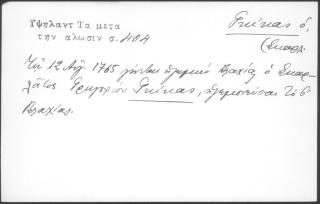 Υψηλαντ Τα μετα
την αλωσιν σ. 404
Γκίκας ὁ,
(Σκαρλ.
Τῇ 12 Αὐγ 1765 γίνεται ἡγεμὼν Βλαχίας ὁ Σκαρ-
λᾶτος Γρηγορίου Γκίκας, ἡγεμονεύσας
Βλαχίας.